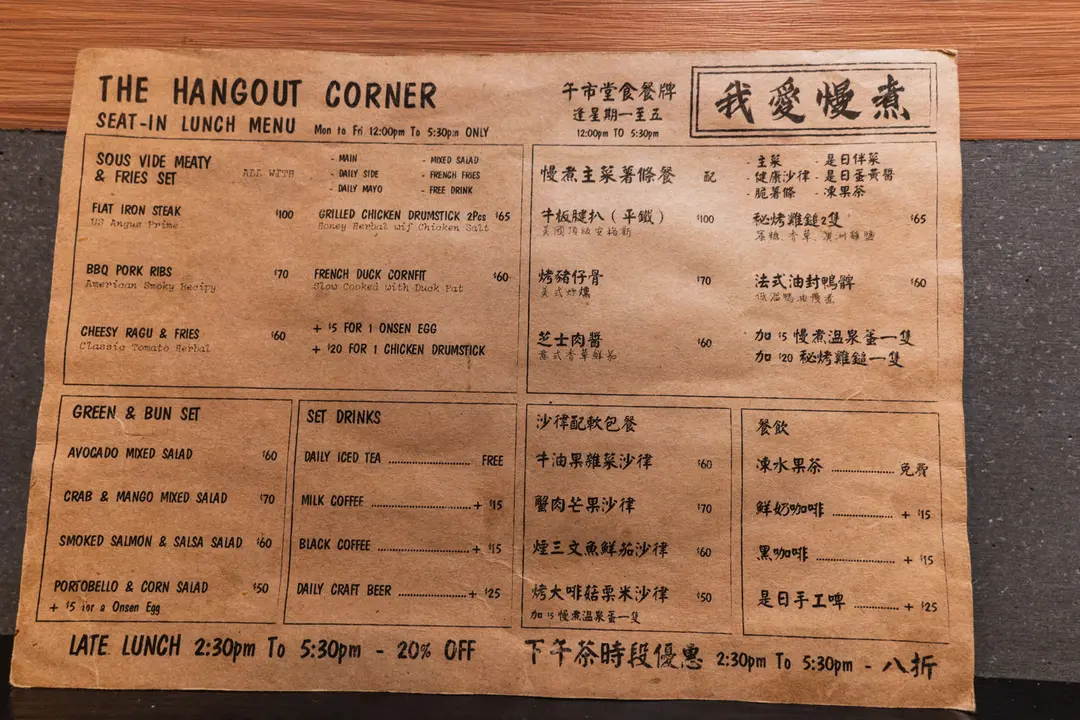 THE HANGOUT CORNER
SEAT-IN LUNCH MENU Mon to Fri 12:00pm To 5:30pm ONLY
SOUS VIDE MEATY
& FRIES SET
ALL WITH
- MAIN
- DAILY SIDE
- DAILY MAYO
- MIXED SALAD
- FRENCH FRIES
- FREE DRINK
FLAT IRON STEAK $100
US Angus Prime
GRILLED CHICKEN DRUMSTICK 2Pcs $65
Honey Herbal wif Chicken Salt
BBQ PORK RIBS $70
American Smoky Recipy
FRENCH DUCK CORNFIT $60
Slow Cooked with Duck Fat
CHEESY RAGU & FRIES $60
Classic Tomato Herbal
+ $5 FOR 1 ONSEN EGG
+ $20 FOR 1 CHICKEN DRUMSTICK
GREEN & BUN SET
AVOCADO MIXED SALAD $60
CRAB & MANGO MIXED SALAD $70
SMOKED SALMON & SALSA SALAD $60
PORTOBELLO & CORN SALAD $50
+ $5 for a Onsen Egg
SET DRINKS
DAILY ICED TEA ........ FREE
MILK COFFEE ........ + $15
BLACK COFFEE ........ + $15
DAILY CRAFT BEER ........ + $25
LATE LUNCH 2:30pm To 5:30pm - 20% OFF
午市堂食餐牌
逢星期一至五
12:00pm TO 5:30pm
我愛慢煮
慢煮主菜薯條餐 配
- 主菜
- 健康沙律
- 脆薯條
- 是日伴菜
- 是日蛋黃醬
- 凍果茶
牛板腱扒（平鐵） $100
美國頂級安格斯
秘烤雞鎚2隻 $65
蜜糖、香草、澳洲雞鹽
烤豬仔骨 $70
美式炸燻
法式油封鴨髀 $60
低溫鴨油慢煮
芝士肉醬 $60
意式香草鮮茄
加 $5 慢煮溫泉蛋一隻
加 $20 秘烤雞鎚一隻
沙律配軟包餐
牛油果雜菜沙律 $60
蟹肉芒果沙律 $70
煙三文魚鮮茄沙律 $60
烤大啡菇粟米沙律 $50
加 $5 慢煮溫泉蛋一隻
餐飲
凍水果茶 ........ 免費
鮮奶咖啡 ........ + $15
黑咖啡 ........ + $15
是日手工啤 ........ + $25
下午茶時段優惠 2:30pm To 5:30pm - 八折